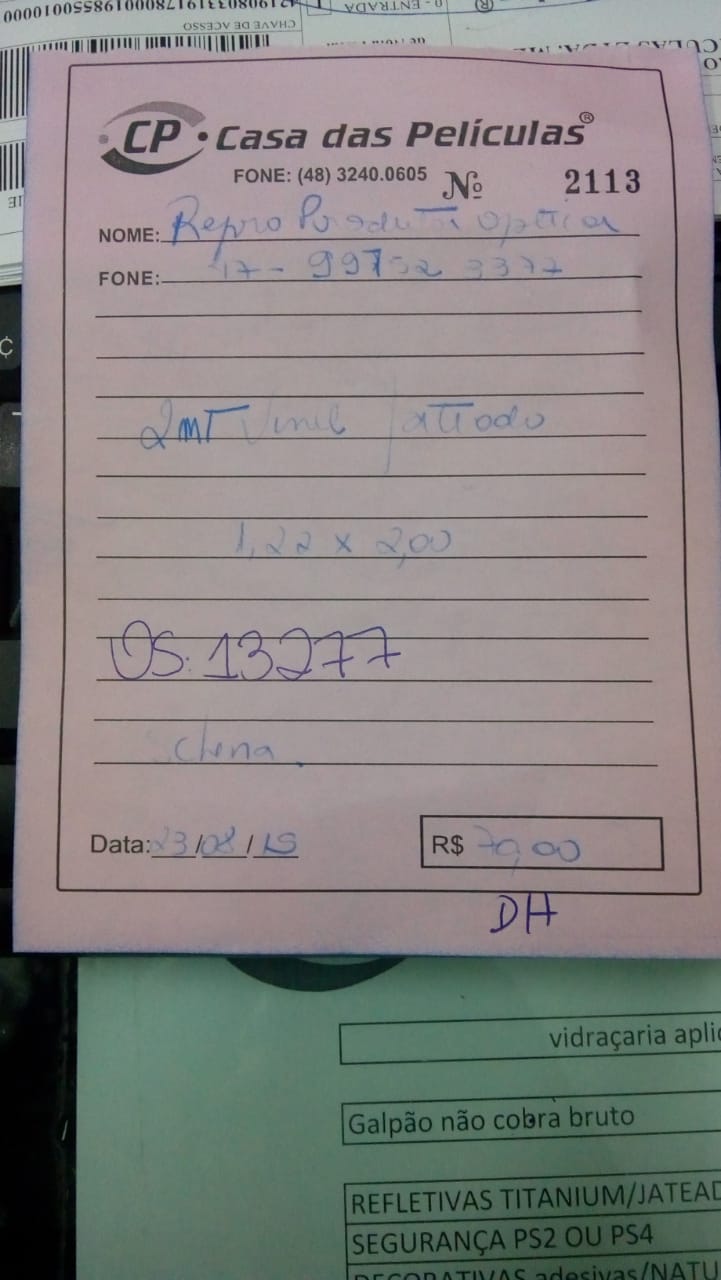 CHAVE DE ACESSO
0 - ENTRADA
CP • Casa das Películas®
FONE: (48) 3240.0605 Nº 2113
NOME: Repro Produtos Optica
FONE: 47 - 99752 3377
2mT Vinil Jattiado
1,22 x 2,00
OS: 13277
Data: 23/08/ R$ 70,00
DH
vidraçaria aplic
Galpão não cobra bruto
REFLETIVAS TITANIUM/JATEAD
SEGURANÇA PS2 OU PS4
DECORATIVAS adesivas/NATU